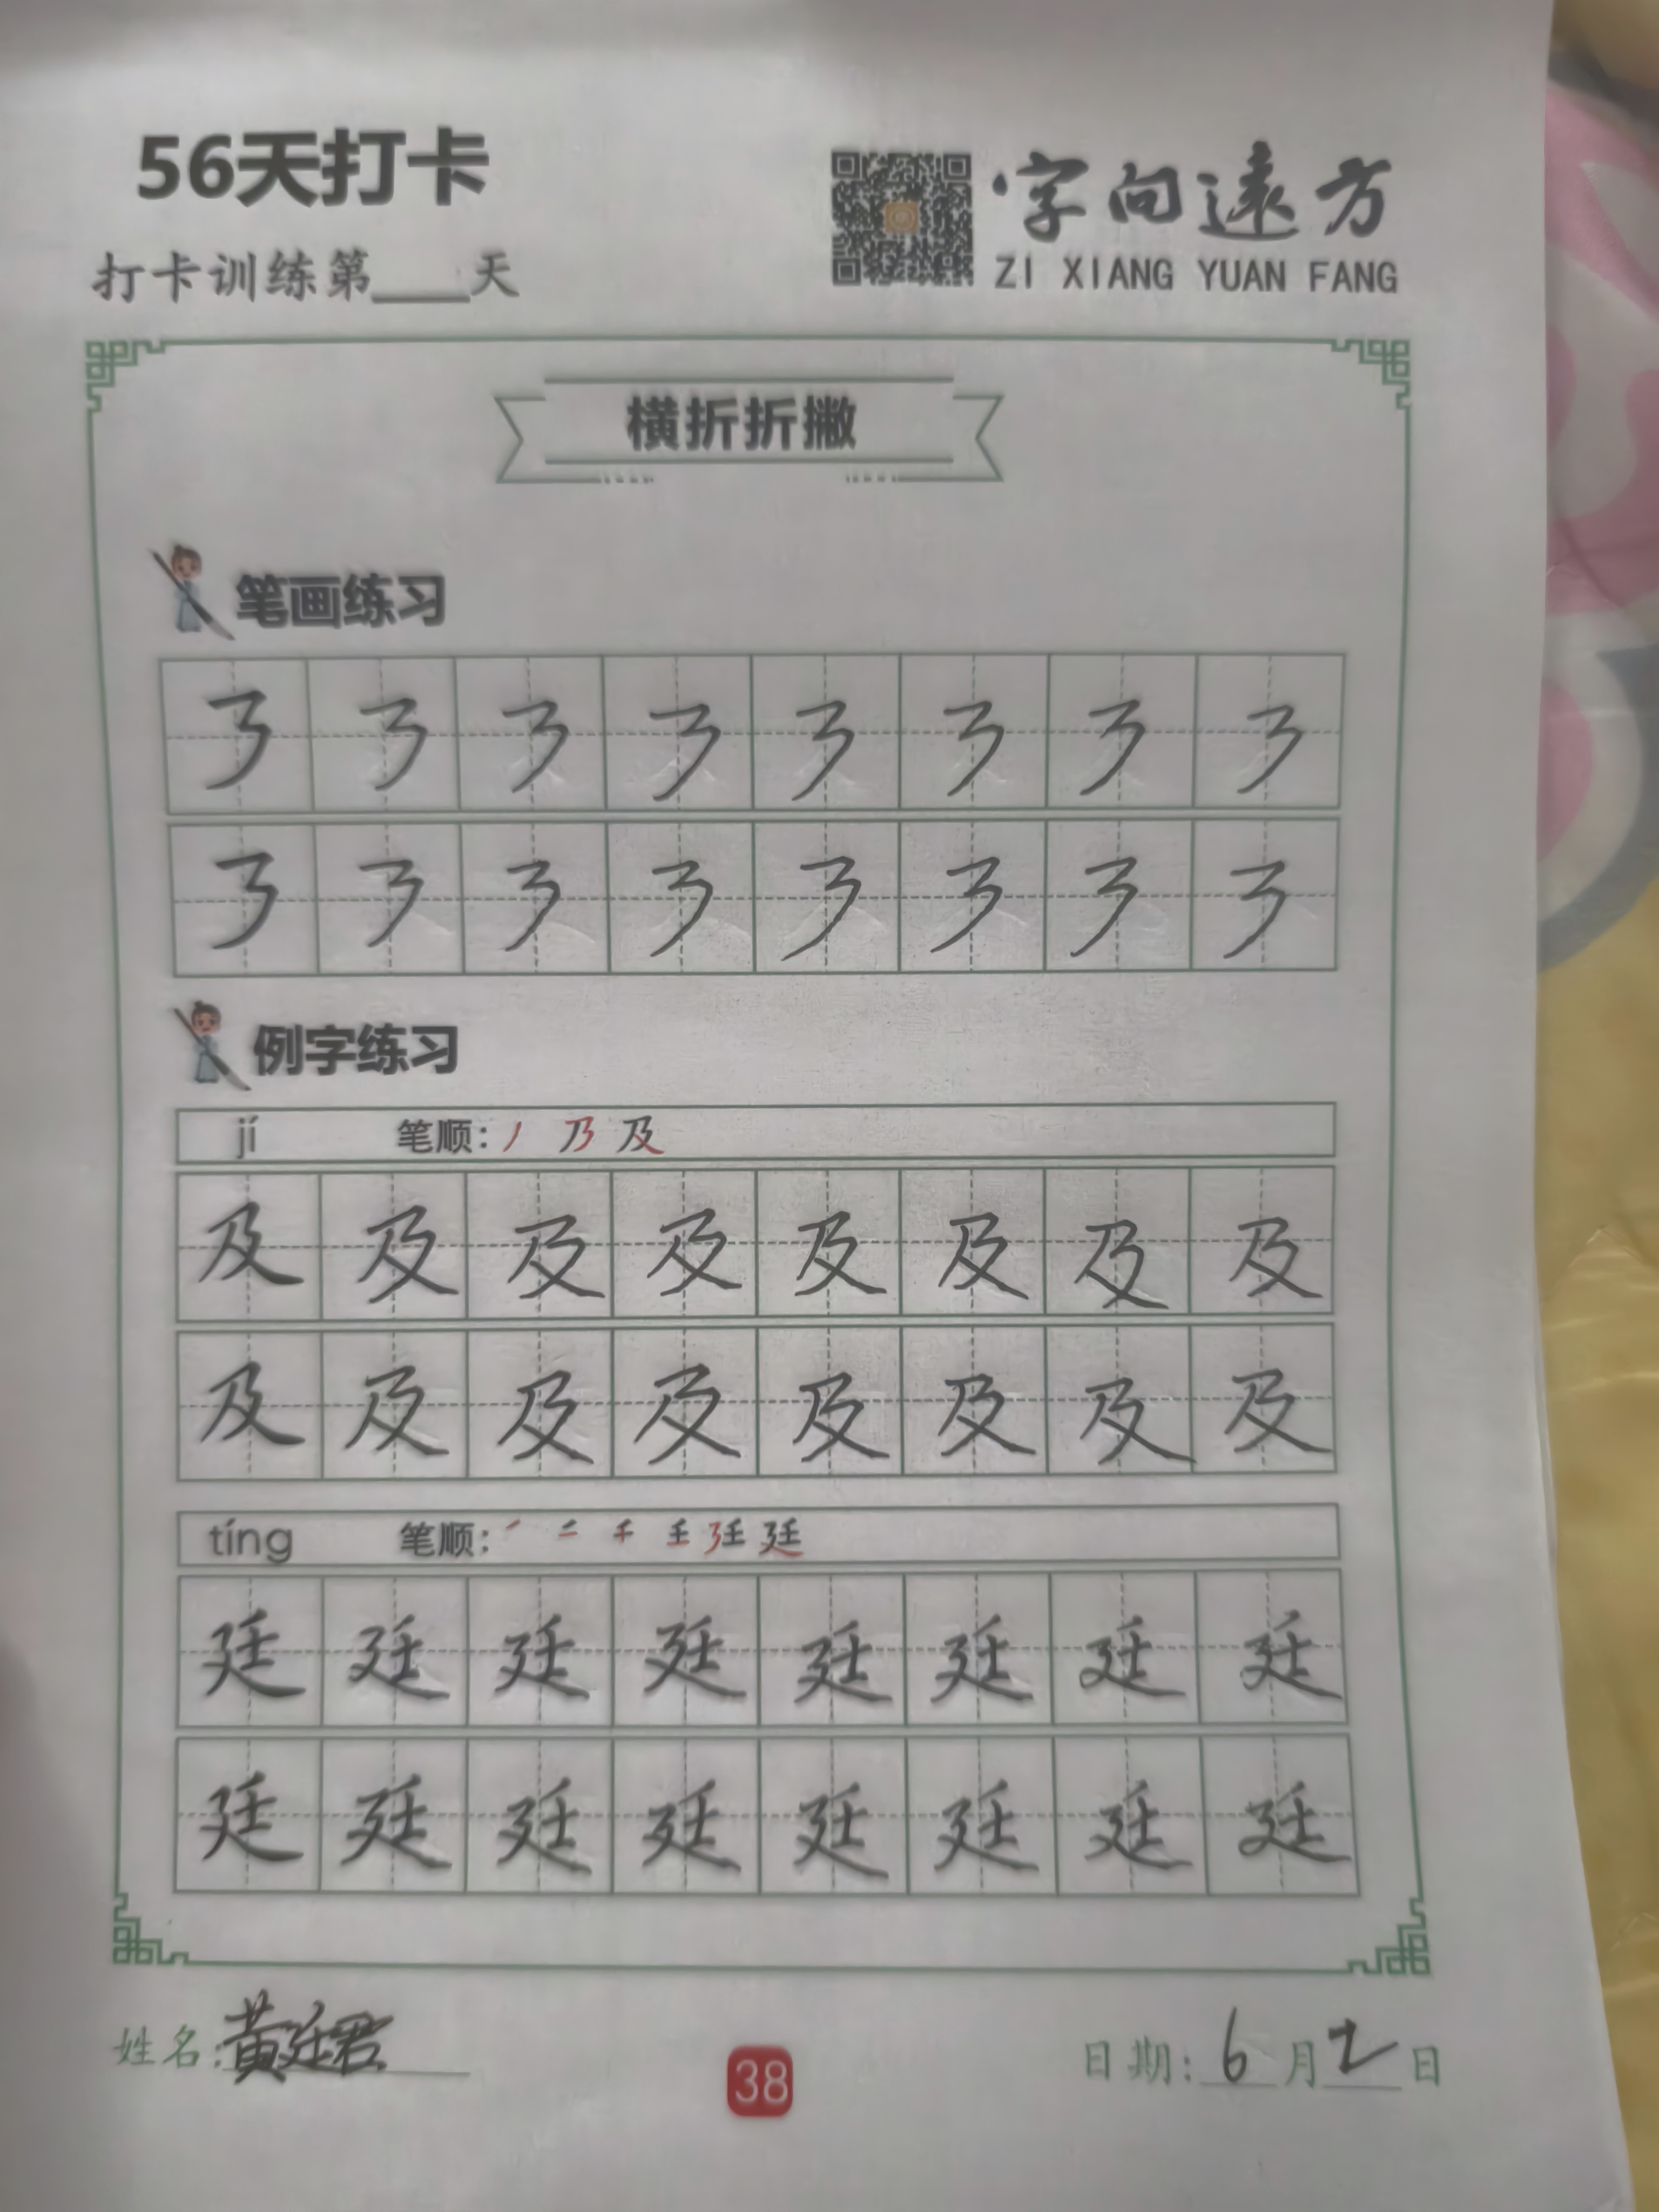 56天打卡
字向遠方
打卡训练第____天
ZI XIANG YUAN FANG
横折折撇
笔画练习
㇋ ㇋ ㇋ ㇋ ㇋ ㇋ ㇋ ㇋
㇋ ㇋ ㇋ ㇋ ㇋ ㇋ ㇋ ㇋
例字练习
jí 笔顺：丿 乃 及
及 及 及 及 及 及 及 及
及 及 及 及 及 及 及 及
tíng 笔顺：
廷 廷 廷 廷 廷 廷 廷 廷
廷 廷 廷 廷 廷 廷 廷 廷
姓名：黄廷君
38
日期：6月2日